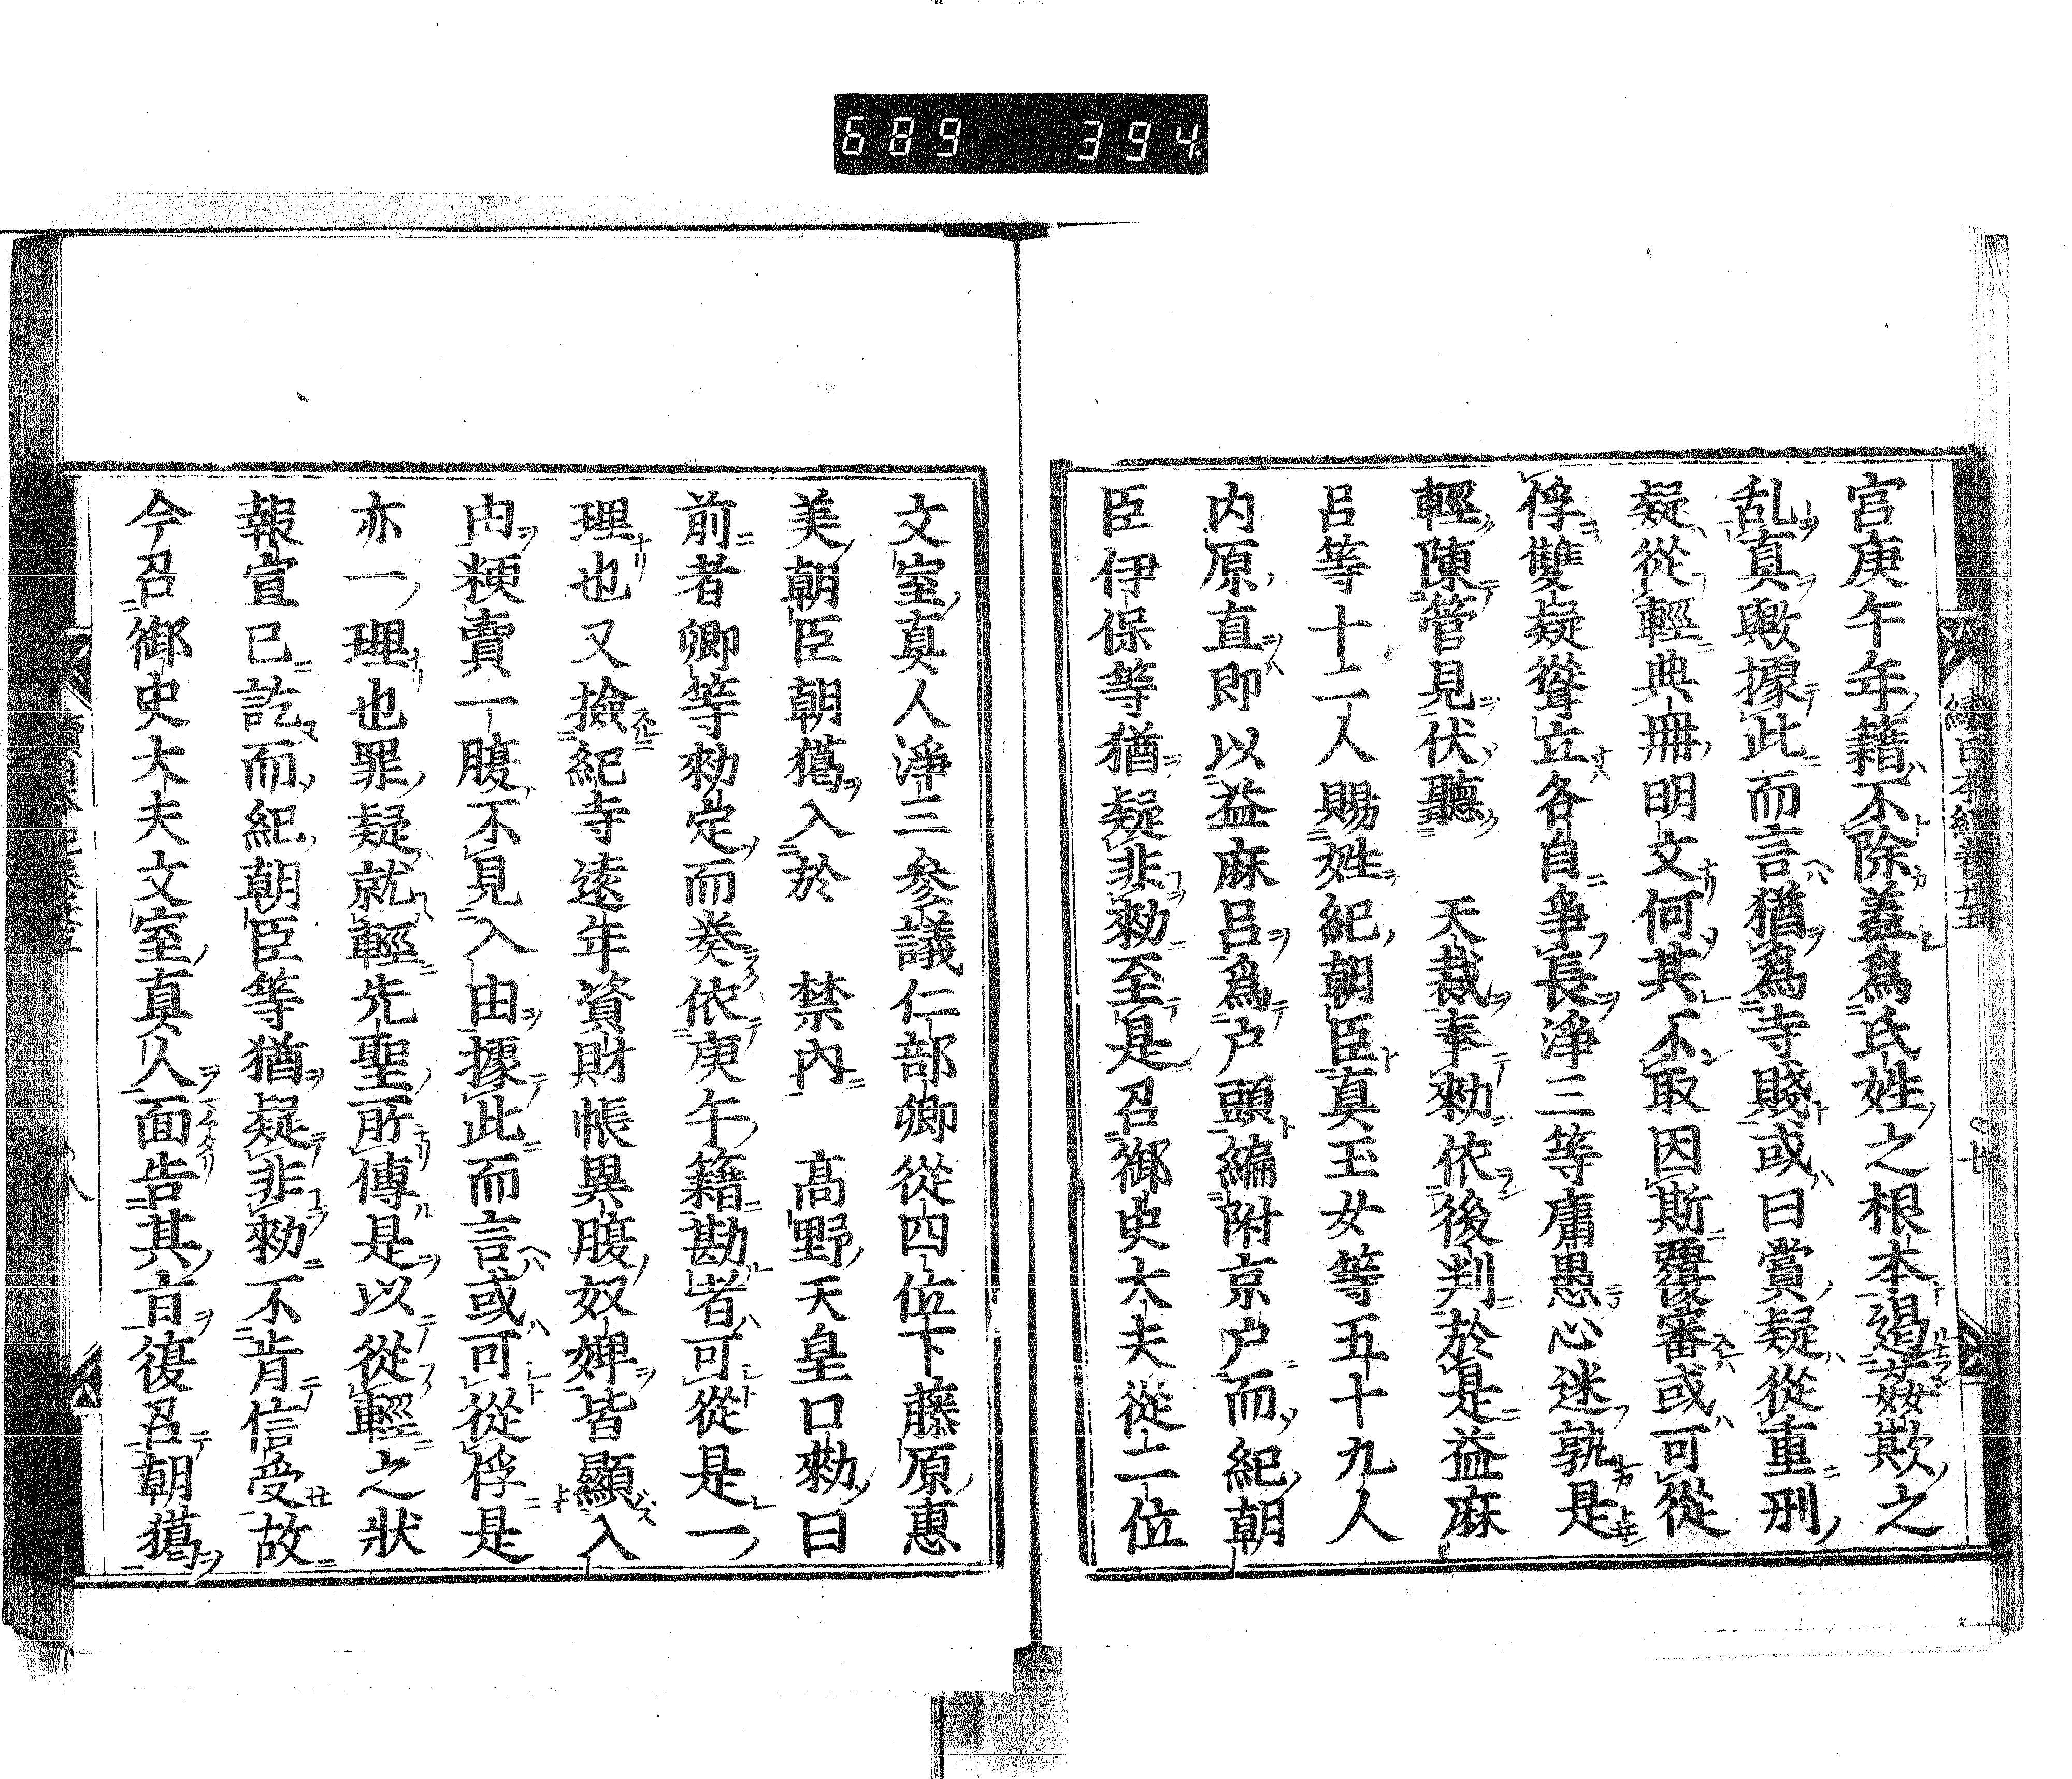 689 394
宮庚午年籍不除蓋爲氏姓之根本遏姦欺之
乱真歟據此而言猶爲寺賤或曰賞疑從重刑
疑從輕典冊明文何其不取因斯覆審或可從
俘雙疑聳立各自爭長淨三等庸愚心迷孰是
輕陳管見伏聽 天裁奉勑依後判於是益麻
呂等十二人賜姓紀朝臣真玉女等五十九人
内原直即以益麻呂爲户頭編附京户而紀朝
臣伊保等猶疑非勑至是召御史大夫從二位
文室真人淨三參議仁部卿從四位下藤原惠
美朝臣朝獦入於 禁內 髙野天皇口勑曰
前者卿等勑定而奏依庚午籍勘者可從是一
理也又撿紀寺遠年資財帳異腹奴婢皆顯入
内粳賣一腹不見入由據此而言或可從俘是
亦一理也罪疑就輕先聖所傳是以從輕之狀
報宣已訖而紀朝臣等猶疑非勑不肯信受故
今召御史大夫文室真人面告其旨復召朝獦